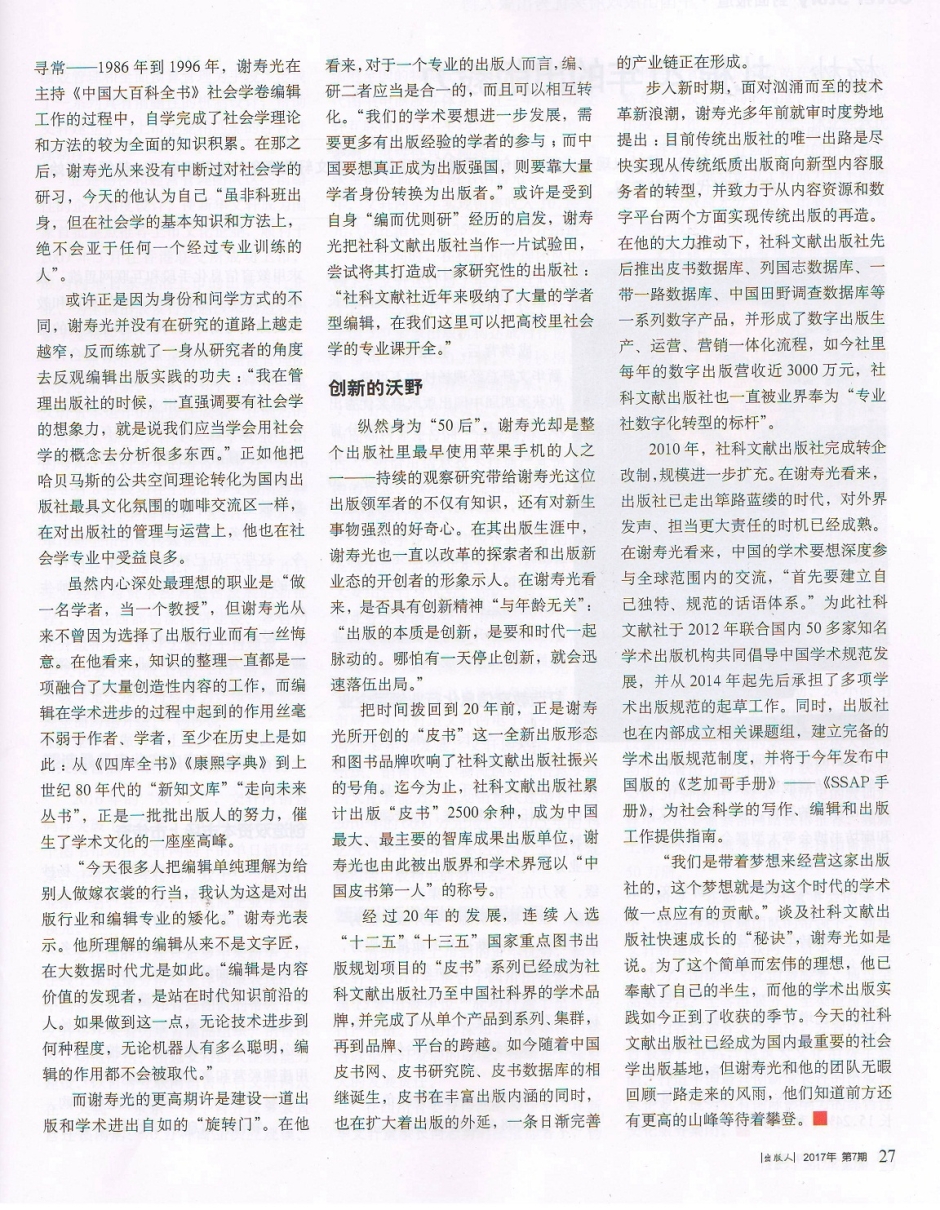 寻常——1986 年到 1996 年，谢寿光在
主持《中国大百科全书》社会学卷编辑
工作的过程中，自学完成了社会学理论
和方法的较为全面的知识积累。在那之
后，谢寿光从来没有中断过对社会学的
研习，今天的他认为自己“虽非科班出
身，但在社会学的基本知识和方法上，
绝不会亚于任何一个经过专业训练的
人”。
或许正是因为身份和问学方式的不
同，谢寿光并没有在研究的道路上越走
越窄，反而练就了一身从研究者的角度
去反观编辑出版实践的功夫：“我在管
理出版社的时候，一直强调要有社会学
的想象力，就是说我们应当学会用社会
学的概念去分析很多东西。”正如他把
哈贝马斯的公共空间理论转化为国内出
版社最具文化氛围的咖啡交流区一样，
在对出版社的管理与运营上，他也在社
会学专业中受益良多。
虽然内心深处最理想的职业是“做
一名学者，当一个教授”，但谢寿光从
来不曾因为选择了出版行业而有一丝悔
意。在他看来，知识的整理一直都是一
项融合了大量创造性内容的工作，而编
辑在学术进步的过程中起到的作用丝毫
不弱于作者、学者，至少在历史上是如
此：从《四库全书》《康熙字典》到上
世纪 80 年代的“新知文库”“走向未来
丛书”，正是一批批出版人的努力，催
生了学术文化的一座座高峰。
“今天很多人把编辑单纯理解为给
别人做嫁衣裳的行当，我认为这是对出
版行业和编辑专业的矮化。”谢寿光表
示。他所理解的编辑从来不是文字匠，
在大数据时代尤是如此。“编辑是内容
价值的发现者，是站在时代知识前沿的
人。如果做到这一点，无论技术进步到
何种程度，无论机器人有多么聪明，编
辑的作用都不会被取代。”
而谢寿光的更高期许是建设一道出
版和学术进出自如的“旋转门”。在他
看来，对于一个专业的出版人而言，编、
研二者应当是合一的，而且可以相互转
化。“我们的学术要想进一步发展，需
要更多有出版经验的学者的参与；而中
国要想真正成为出版强国，则要靠大量
学者身份转换为出版者。”或许是受到
自身“编而优则研”经历的启发，谢寿
光把社科文献出版社当作一片试验田，
尝试将其打造成一家研究性的出版社：
“社科文献社近年来吸纳了大量的学者
型编辑，在我们这里可以把高校里社会
学的专业课开全。”
创新的沃野
纵然身为“50 后”，谢寿光却是整
个出版社里最早使用苹果手机的人之
一——持续的观察研究带给谢寿光这位
出版领军者的不仅有知识，还有对新生
事物强烈的好奇心。在其出版生涯中，
谢寿光也一直以改革的探索者和出版新
业态的开创者的形象示人。在谢寿光看
来，是否具有创新精神“与年龄无关”：
“出版的本质是创新，是要和时代一起
脉动的。哪怕有一天停止创新，就会迅
速落伍出局。”
把时间拨回到 20 年前，正是谢寿
光所开创的“皮书”这一全新出版形态
和图书品牌吹响了社科文献出版社振兴
的号角。迄今为止，社科文献出版社累
计出版“皮书”2500 余种，成为中国
最大、最主要的智库成果出版单位，谢
寿光也由此被出版界和学术界冠以“中
国皮书第一人”的称号。
经过 20 年的发展，连续入选
“十二五”“十三五”国家重点图书出
版规划项目的“皮书”系列已经成为社
科文献出版社乃至中国社科界的学术品
牌，并完成了从单个产品到系列、集群，
再到品牌、平台的跨越。如今随着中国
皮书网、皮书研究院、皮书数据库的相
继诞生，皮书在丰富出版内涵的同时，
也在扩大着出版的外延，一条日渐完善
的产业链正在形成。
步入新时期，面对汹涌而至的技术
革新浪潮，谢寿光多年前就审时度势地
提出：目前传统出版社的唯一出路是尽
快实现从传统纸质出版商向新型内容服
务者的转型，并致力于从内容资源和数
字平台两个方面实现传统出版的再造。
在他的大力推动下，社科文献出版社先
后推出皮书数据库、列国志数据库、一
带一路数据库、中国田野调查数据库等
一系列数字产品，并形成了数字出版生
产、运营、营销一体化流程，如今社里
每年的数字出版营收近 3000 万元，社
科文献出版社也一直被业界奉为“专业
社数字化转型的标杆”。
2010 年，社科文献出版社完成转企
改制，规模进一步扩充。在谢寿光看来，
出版社已走出筚路蓝缕的时代，对外界
发声、担当更大责任的时机已经成熟。
在谢寿光看来，中国的学术要想深度参
与全球范围内的交流，“首先要建立自
己独特、规范的话语体系。”为此社科
文献社于 2012 年联合国内 50 多家知名
学术出版机构共同倡导中国学术规范发
展，并从 2014 年起先后承担了多项学
术出版规范的起草工作。同时，出版社
也在内部成立相关课题组，建立完备的
学术出版规范制度，并将于今年发布中
国版的《芝加哥手册》——《SSAP 手
册》，为社会科学的写作、编辑和出版
工作提供指南。
“我们是带着梦想来经营这家出版
社的，这个梦想就是为这个时代的学术
做一点应有的贡献。”谈及社科文献出
版社快速成长的“秘诀”，谢寿光如是
说。为了这个简单而宏伟的理想，他已
奉献了自己的半生，而他的学术出版实
践如今正到了收获的季节。今天的社科
文献出版社已经成为国内最重要的社会
学出版基地，但谢寿光和他的团队无暇
回顾一路走来的风雨，他们知道前方还
有更高的山峰等待着攀登。
|出版人| 2017年 第7期 27